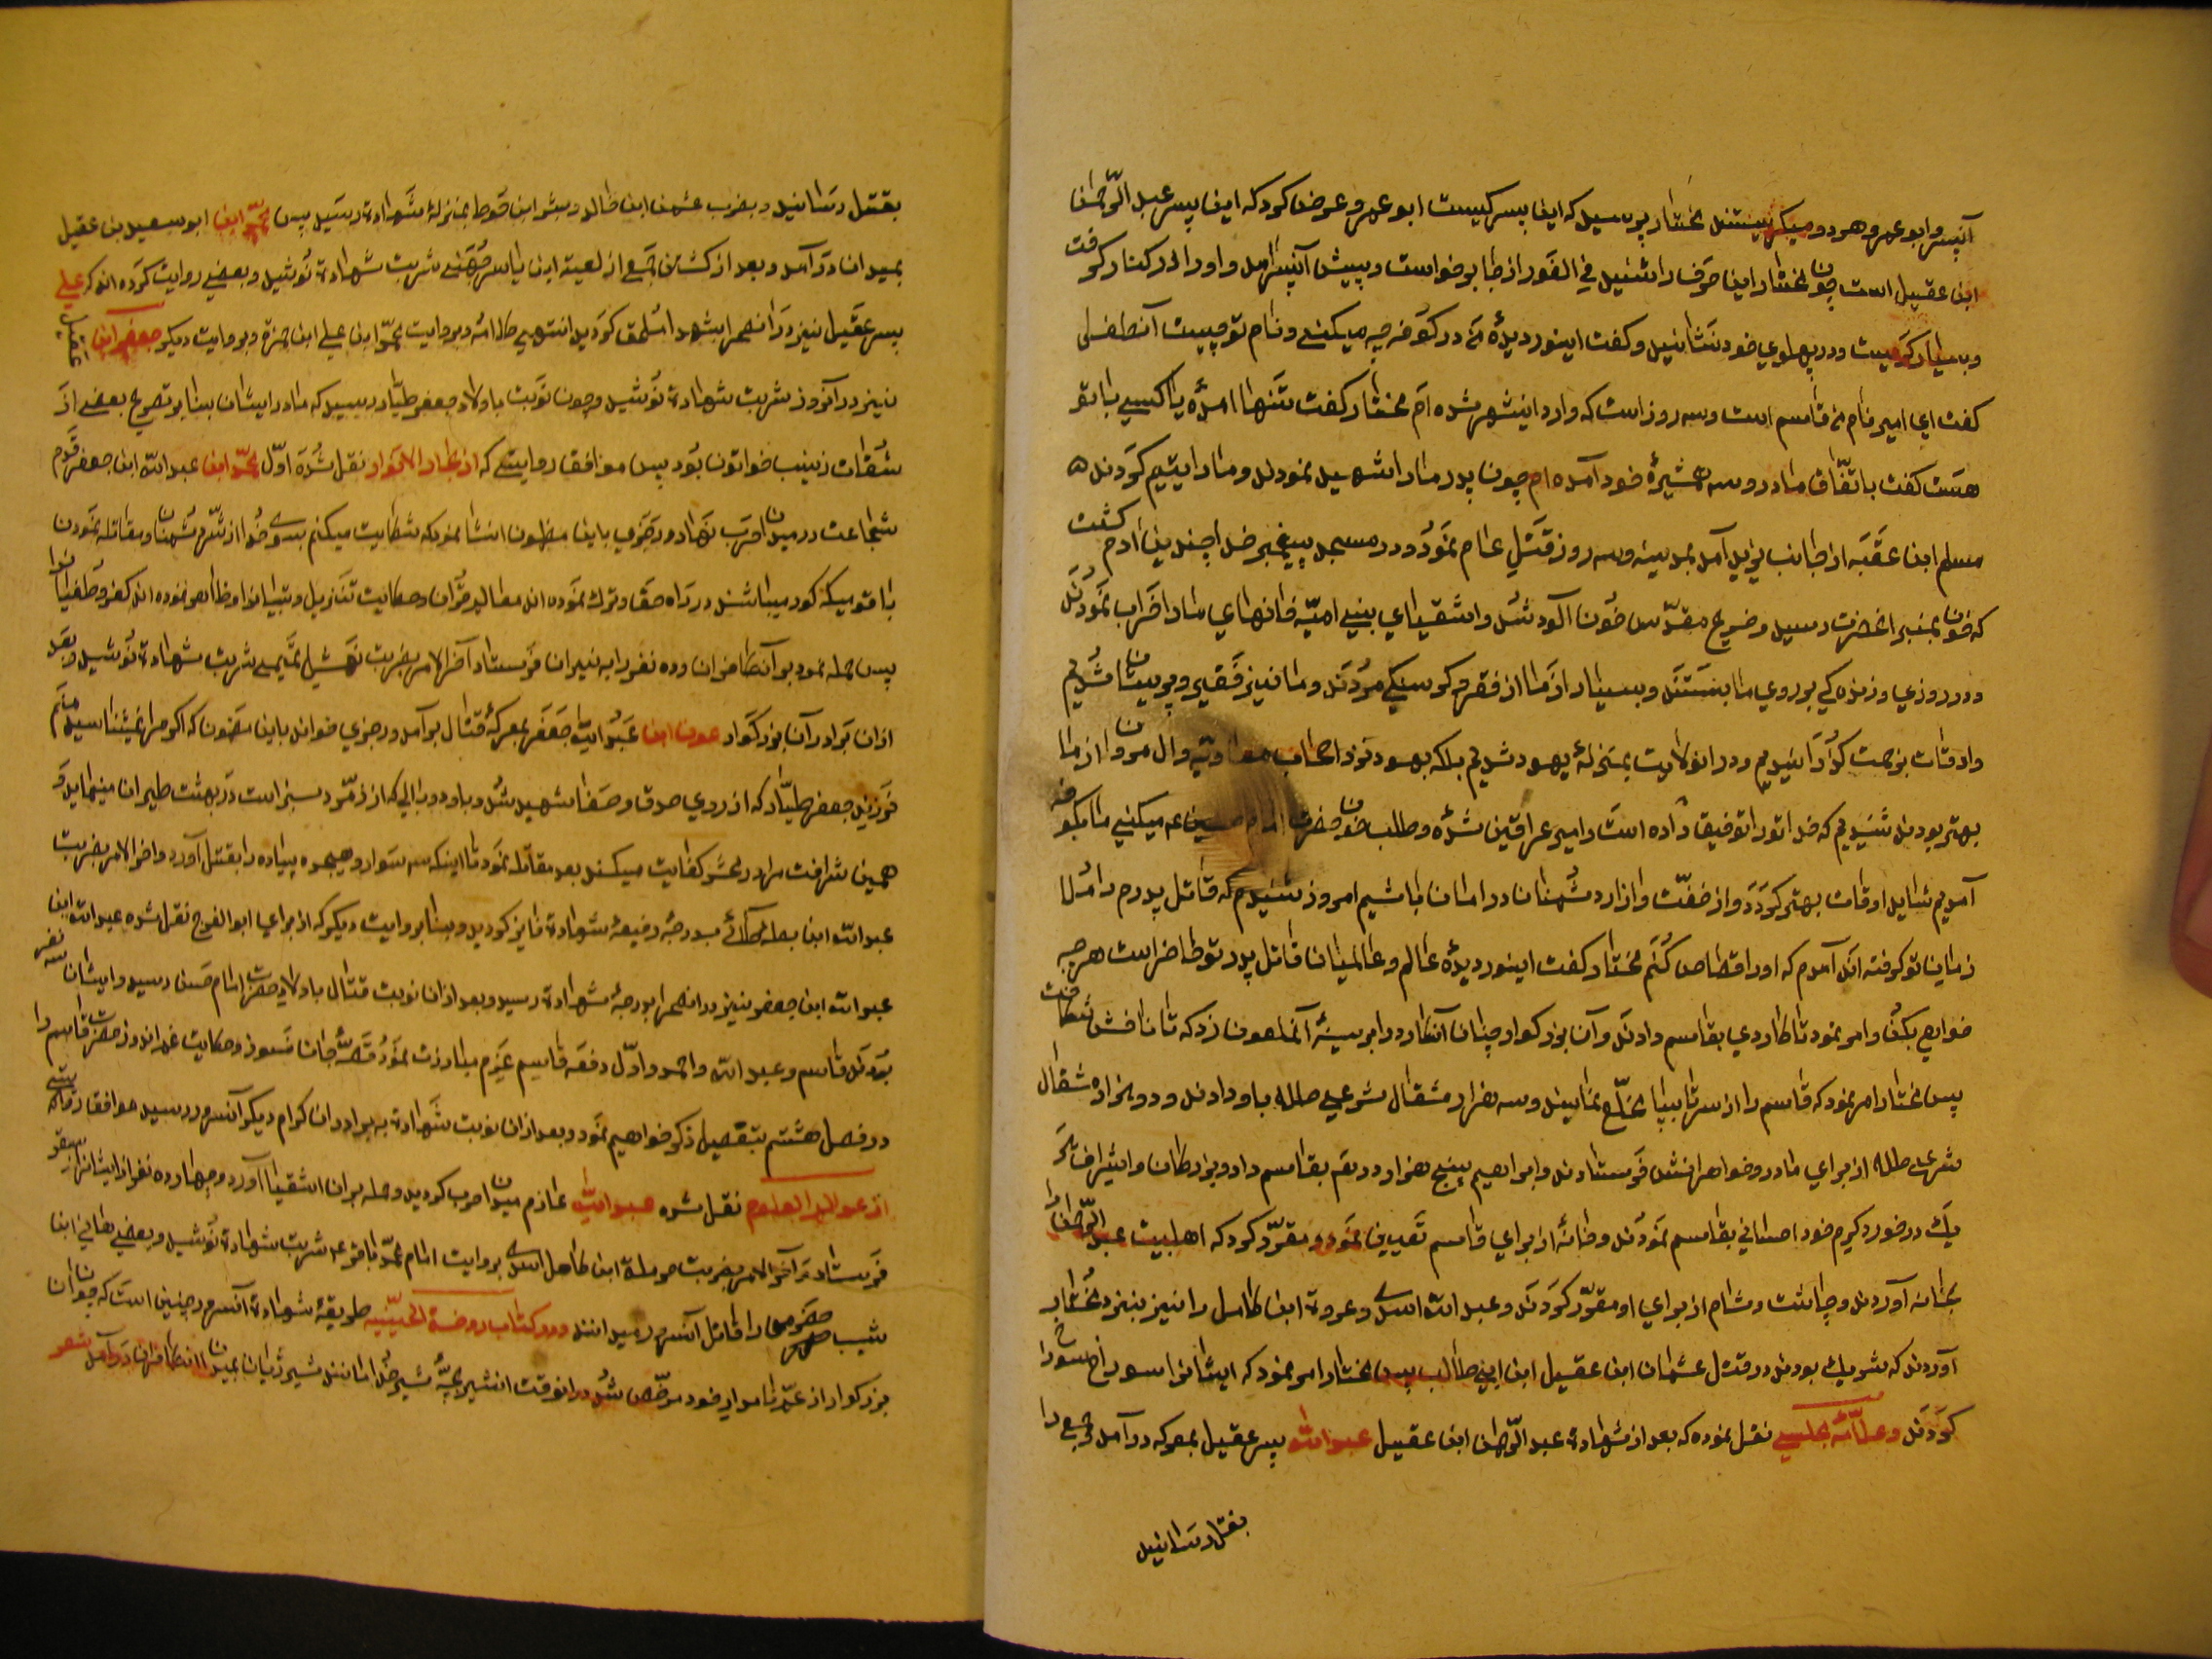 آنپسر و ابو عمرو هر دو میگریستند مختار پرسید که این پسر کیست ابو عمرو عرض کرد که این پسر عبد الرّحمن
ابن عقیل است چون مختار این حرف را شنید فی الفور از جا برخواست و پیش آنپسر آمد و او را در کنار گرفت
و بسیار گریست و در پهلوی خود نشانید و گفت اینور دیدۀ من در کوفه چه میکنی و نام تو چیست آنطفل
گفت ای امیر نام من قاسم است و سه روز است که وارد اینشهر شده ام مختار گفت تنها امدۀ یا کسی با تو
هست گفت باتّفاق مادر و سه همشیرۀ خود آمده ام چون پدر ما را شهید نمودند و ما را یتیم کردند
مسلم ابن عقبه از جانب یزید آمد بمدینه و سه روز قتل عام نمود و در مسجد پیغمبر خدا چندین ادم کشت
که خون بمنبر انحضرت رسید و ضریح مقدّس خون آلود شد و اشقیای بنی امیّه خانهای ما را خراب نمودند
و در روزی و زندگی بر روی ما بستند و بسیار از ما از فقر و گرسنگی مردند و ما نیز فقیر و پریشان شدیم
و اوقات بزحمت گذرانیدیم و در انولایت بمنزلۀ یهود شدیم بلکه یهود نزد اصحاب معاویه و ال مروان از ما
بهتر بودند شنیدیم که خدا تو را توفیق داده است و امیر عراقین شدۀ و طلب خون حضرت امام حسین عم میکنی ما بکوفه
آمدیم شاید اوقات بهتر گردد و از خفّت و ازار دشمنان در امان باشیم امروز شنیدم که قاتل پدرم را ملا
زمان تو گرفته اند آمدم که او را قصاص کنم مختار گفت اینور دیدۀ عالم و عالمیان قاتل پدر تو حاضر است هر چه
خواهی بکن و امر نمود تا کاردی بقاسم دادند و آن بزرگوار چنان آنکارد را بر سینۀ آنملعون زد که تا نافش شکافت
پس مختار امر نمود که قاسم را از سر تا بپا مخلّع نمایند و سه هزار مثقال شرعی طلا باو دادند و دو هزار مثقال
شرعی طلا از برای مادر و خواهرانش فرستادند و ابراهیم پنج هزار درهم بقاسم داد و بزرکان و اشراف هر
یک در خور کرم خود احسانی بقاسم نمودند و خانۀ از برای قاسم تعیین نمود و مقرّر کرد که اهلبیت عبد الرّحمن را
بخانه آوردند و چاشت و شام از برای او مقرّر کردند و عبد الله اسدی و عروة ابن کامل را نیز بنزد مختار
آوردند که شریک بودند در قتل عثمان ابن عقیل ابن ابی طالب پس مختار امر نمود که ایشانرا سوراخ سوراخ
کردند و علّامۀ مجلسی نقل نموده که بعد از شهادة عبد الرّحمن ابن عقیل عبد الله پسر عقیل بمعرکه درآمد و جمعی را
بقتل رسانید
بقتل رسانید و بضرب عثمن ابن خالد و بشر ابن حوط بمنزلۀ شهادة رسید پس محمّد ابن ابو سعید بن عقیل
بمیدان درآمد و بعد از کشتن جمعی از لعینه ابن یاسر جهنی شربت شهادة نوشید و بعضی روایت کرده اند که علی
پسر عقیل نیز در انصحرا بشهدا ملحق گردید انتهی کلامه و بروایت محمّد ابن علی ابن حمزة و بروایت دیگر جعفر ابن محمد ابن عقیل
نیز در آنروز شربت شهادة نوشید و چون نوبت باولاد جعفر طیّار رسید که مادر ایشان بنا بر تصریح بعضی از
ثقات زینب خواتون بود پس موافق روایتی که از بحار الانوار نقل شده اوّل محمّد ابن عبد الله ابن جعفر قدم
شجاعت در میدان حرب نهاد و رجزی باین مضمون انشا نمود که شکایت میکنم بسوی خدا از شرّ دشمنان و مقاتله نمودن
با قومیکه کور میباشند در راه حق و ترک نموده اند معالم قران و حکایت تنزیل و تبیانرا و ظاهر نموده اند کفر و طغیانرا
پس حمله نمود بر آنکافران و ده نفر را به نیران فرستاد آخر الامر بضربت نهشل تمیمی شربت شهادة نوشید و بعد
ازان برادر آن بزرگوار عون ابن عبد الله جعفر بمعرکۀ قتال برآمد و رجزی خواند باین مضمون که اگر مرا نمیشناسید منم
فرزند جعفر طیّار که از روی صدق و صفا شهید شد و با دو بالی که از زمّرد سبز است در بهشت طیران مینماید و
همین شرافت مرا در محشر کفایت میکند بعد مقاتله نمود تا اینکه سه سوار و هیجده پیاده را بقتل آورد و اخر الامر بضربت
عبد الله ابن بطه طائی بدرجۀ رفیعۀ شهادة فایز گردید و بنا بر روایت دیگر که از برای ابو الفرج نقل شده عبید الله ابن
عبد الله ابن جعفر نیز در انصحرا بدرجۀ شهادة رسید و بعد ازان نوبت قتال باولاد حضرت امام حسن رسید و ایشان سه نفر
بودند قاسم و عبد الله و احمد و اوّل دفعه قاسم عزم مبارزت نمود و قصّۀ جان سوز و حکایت غم اندوز حضرت قاسم را
در فصل هشتم بتفصیل ذکر خواهیم نمود و بعد ازان نوبت شهادة به برادران کرام دیگر آنسرور رسید موافق روایتی که
از عوالم العلوم نقل شده عبد الله عازم میدان حرب گردید و حمله بران اشقیا آورد و چهارده نفر از ایشانرا بسقر
فرستاد و آخر الامر بضربت حرملة ابن کاهل اسدی بروایت امام محمّد باقر عم شربت شهادة نوشید و بعضی هانی ابن
شیب حضرمی را قاتل آنسرور میدانند و در کتاب روضة الحسینیه طریقۀ شهادة آنسرور چنین است که چون ان
بزرگوار از عمّ نامدار خود مرخّص شد در انوقت انشیر بچۀ شیر خدا مانند شیر ژیان بمیدان انکافران درآمد شعر